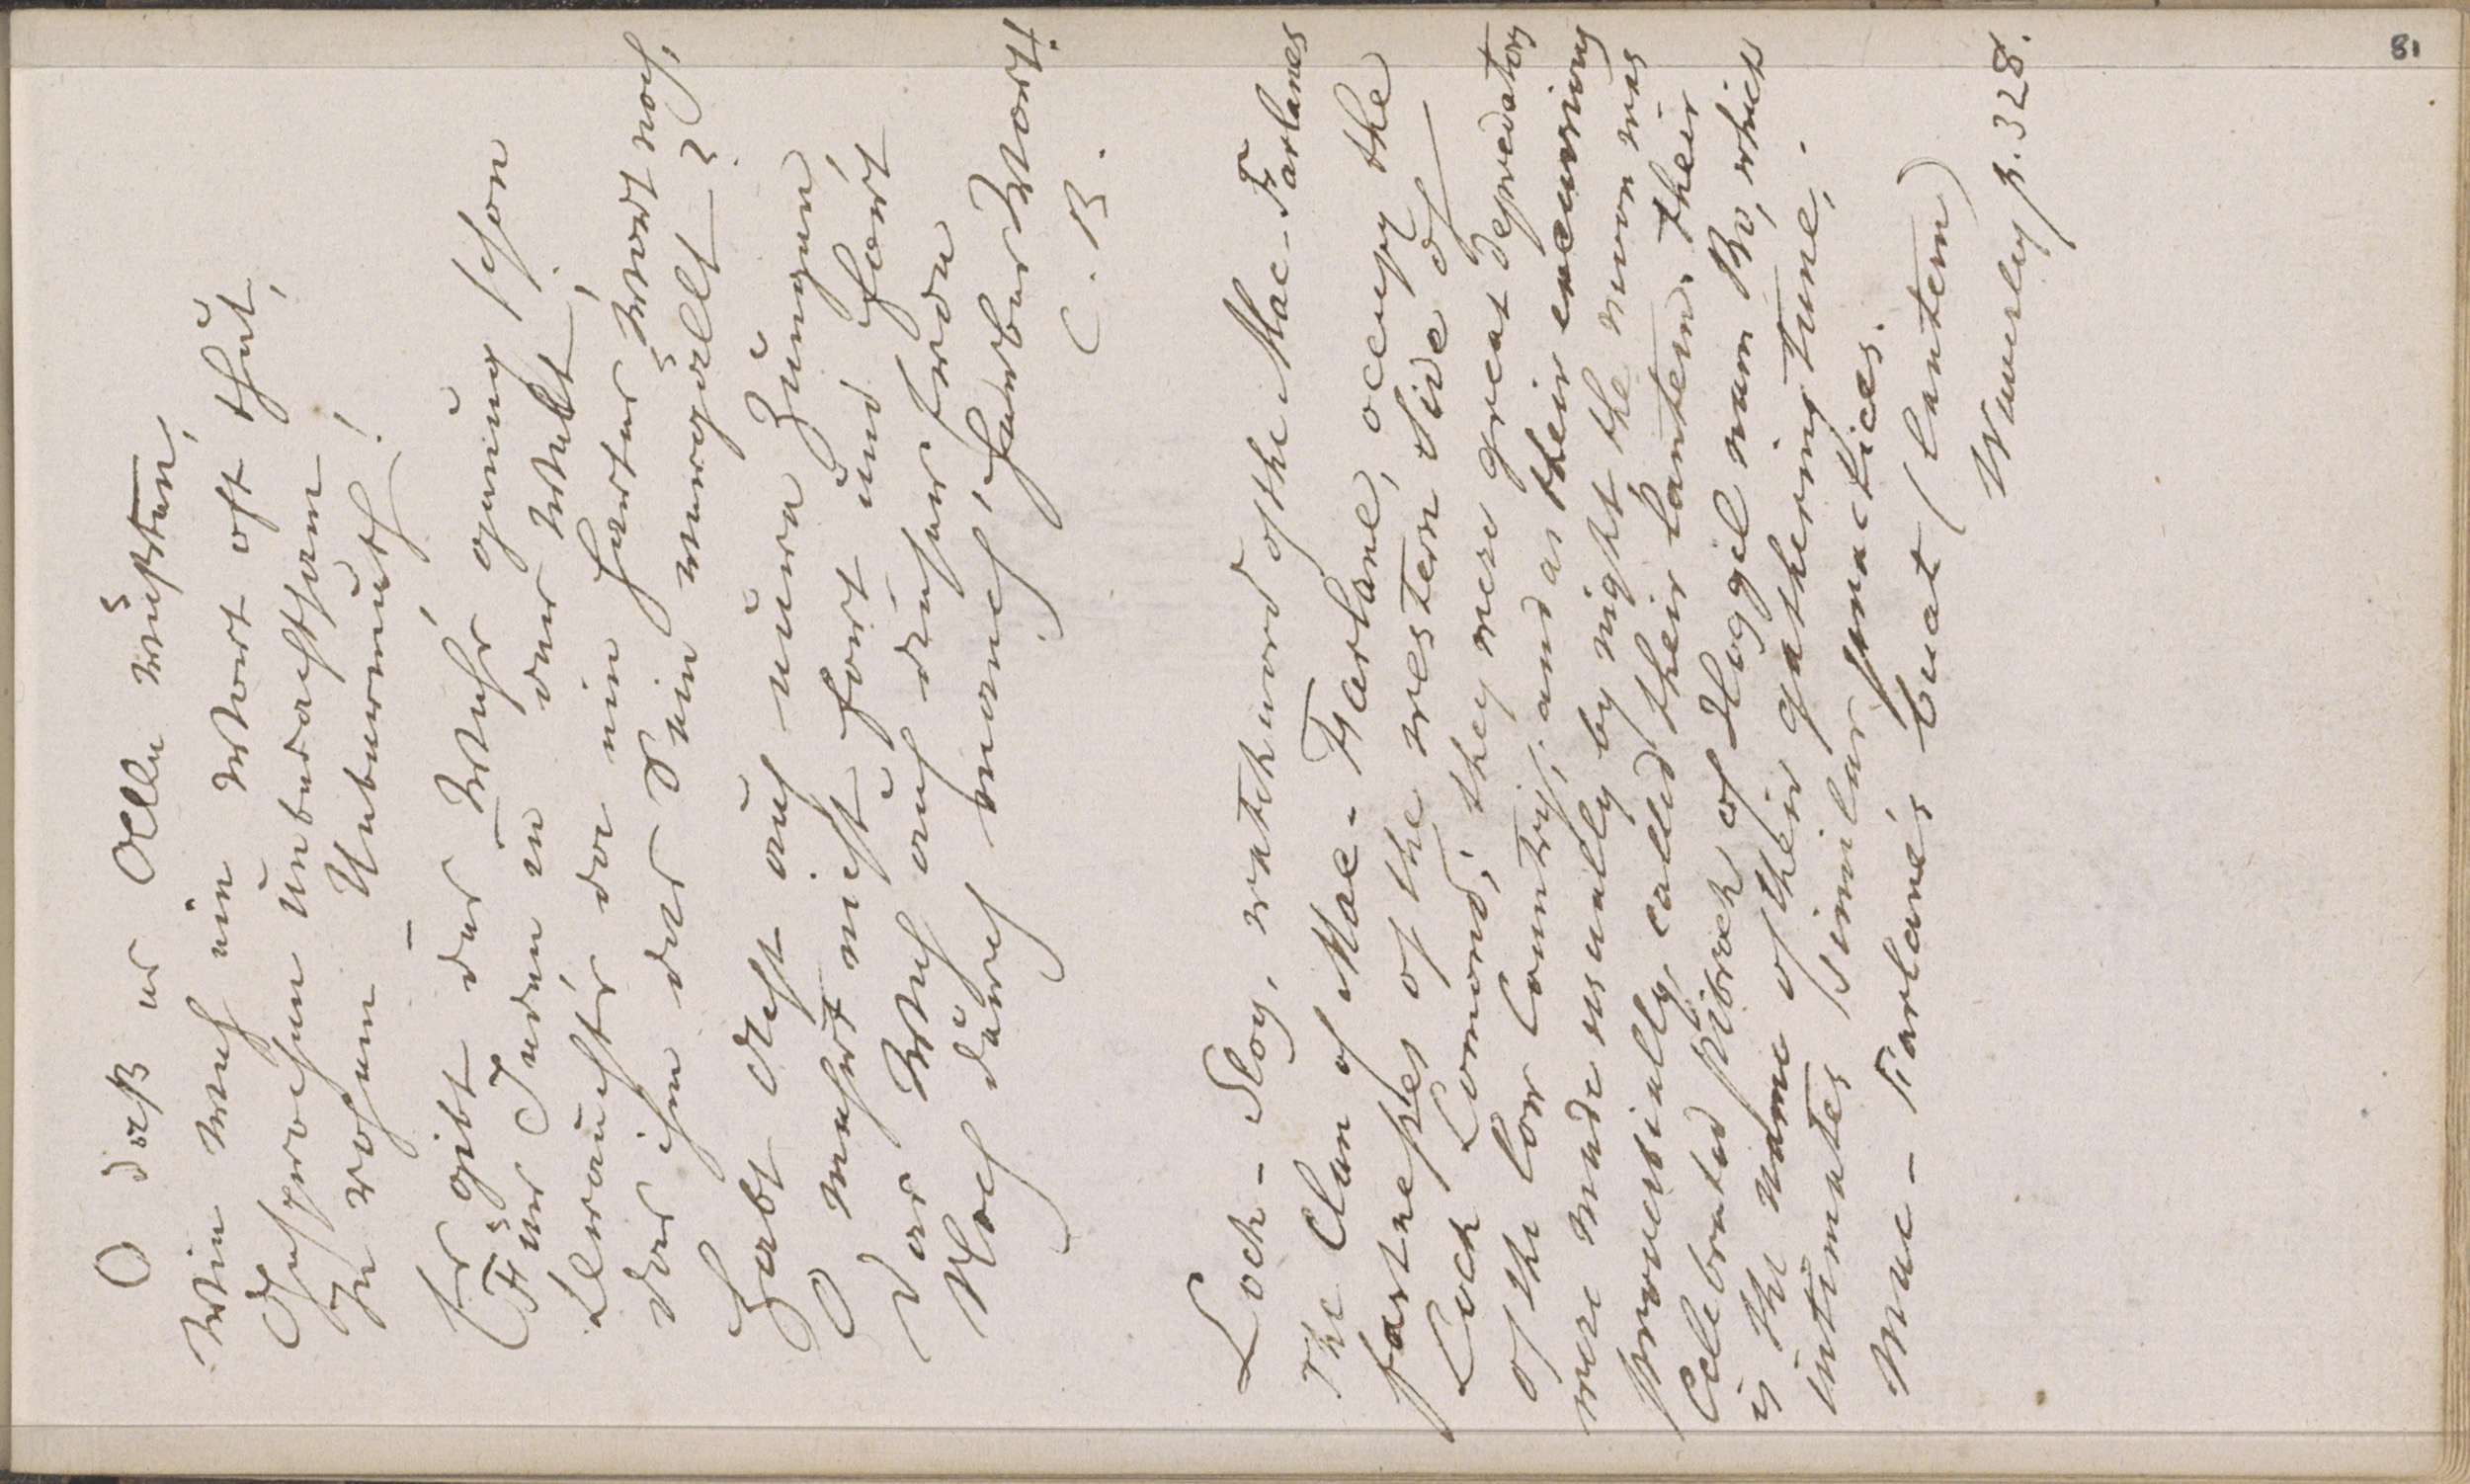 O daß es Alle wüßten,
Wie Weh ein Wort oft thut,
Gesprochen unbedachtsam
In rohem Uebermuth!
Es gibt des Weh's genug schon
Für Jeden in der Welt,
Braucht's da ein hartes Wort noch,
Das ihm das Sein vergällt?
Habt Acht auf eure Zungen
O mehrt nicht fort und fort
Das Weh auf dieser Erde
Noch durch manch' herbes Wort!
C. B.
Loch-Sloy, watchword of the Mac-Farlanes
The Clan of Mac-Farlane, occupy the
fastnesses of the western Side of
Loch Lomond; they were great depredators
of the low Country; and as their excursions
were made usually by night the moon was
proverbially called their lantern. Their
Celebrated pibroch of Hoggil nam Bo, which
is the name of their gathering tune,
intimates similar practices.
Mac-Farlane's buat (lantern)
Waverley p. 328.